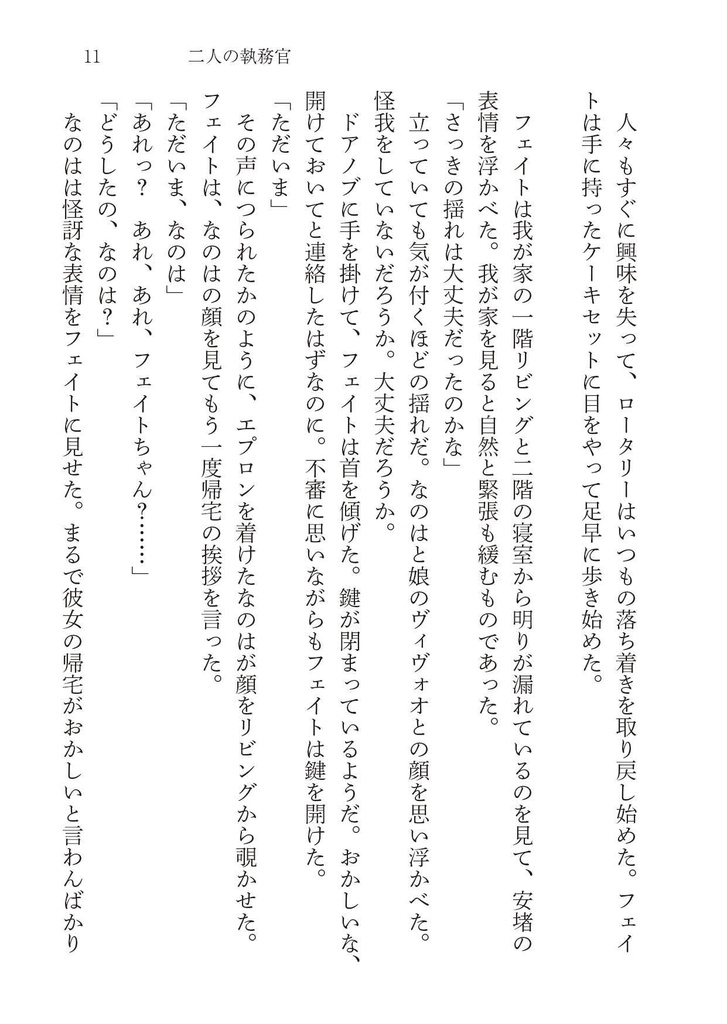 11　二人の執務官
　人々もすぐに興味を失って、ロータリーはいつもの落ち着きを取り戻し始めた。フェイ
トは手に持ったケーキセットに目をやって足早に歩き始めた。
　フェイトは我が家の一階リビングと二階の寝室から明りが漏れているのを見て、安堵の
表情を浮かべた。我が家を見ると自然と緊張も緩むものであった。
「さっきの揺れは大丈夫だったのかな」
　立っていても気が付くほどの揺れだ。なのはと娘のヴィヴォオとの顔を思い浮かべた。
怪我をしていないだろうか。大丈夫だろうか。
　ドアノブに手を掛けて、フェイトは首を傾げた。鍵が閉まっているようだ。おかしいな、
開けておいてと連絡したはずなのに。不審に思いながらもフェイトは鍵を開けた。
「ただいま」
　その声につられたかのように、エプロンを着けたなのはが顔をリビングから覗かせた。
フェイトは、なのはの顔を見てもう一度帰宅の挨拶を言った。
「ただいま、なのは」
「あれっ？　あれ、あれ、フェイトちゃん？……」
「どうしたの、なのは？」
　なのはは怪訝な表情をフェイトに見せた。まるで彼女の帰宅がおかしいと言わんばかり